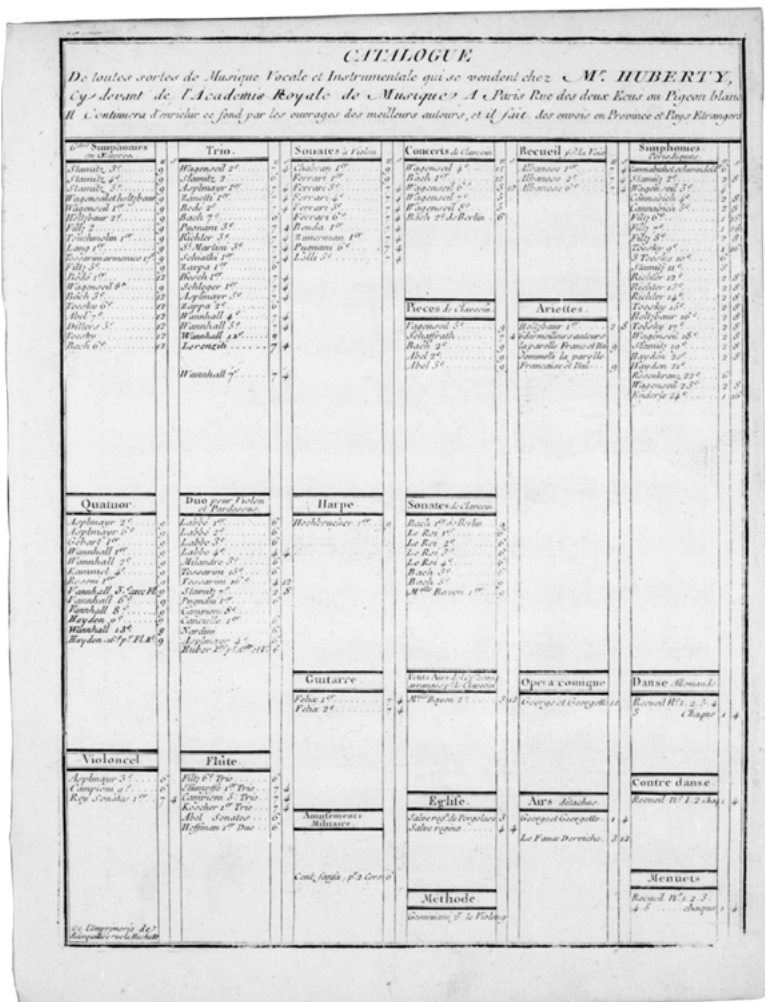 CATALOGUE
De toutes sortes de Musique Vocale et Instrumentale qui se vendent chez Mr. HUBERTY,
Cy devant de l'Academie Royale de Musique A Paris Rue des deux Ecus au Pigeon blanc
Il Continuera d'enrichir ce fond par les ouvrages des meilleurs auteurs, et il fait des envois en Province et Pays Etrangers
Simphonies
en Œuvres
Stamitz 3e 9
Stamitz 4e 9
Stamitz 5e 9
Wagenseil et holtzbaur 9
Wagenseil 1er 9
Holtzbaur 2e 9
Filtz 2 9
Touchmolin 1er 9
Lang 1er 9
Filtz 5e 9
Wagenseil 8e 12
Bach 3e 12
Toesky 6e 12
Abel 7e 12
Ditters 3e 12
Toesky 12
Bach 6e 12
Trio
Wagenseil 2e 7 4
Stamitz 2 6
Asplmayr 1er 7 4
Zanetti 1er 7 4
Bode 2e 7 4
Bach 7e 6
Pugnani 3e 7 4
Richter 3e 7 4
St Martini 3e 7 4
Schiatti 1er 7 4
Zappa 1er 6
Schleger 1er 7 4
Asplmayr 5e 7 4
Zappa 2e 6
Wannhall 4e 7 4
Wannhall 5e 7 4
Wannhall 12e 9
Lorenziti 7 4
Wannhall 7e 7 4
Sonates à Violon
Chabran 1er 9
Ferrari 1er 7 4
Ferrari 3e 7 4
Ferrari 4e 7 4
Ferrari 5e 7 4
Ferrari 6e 7 4
Benda 1er 7 4
Zimerman 1er 7 4
Pugnani 6e 7 4
Lolli 5e 7 4
Concerts de Clavecin
Wagenseil 4e 12
Bach 1er 12
Wagenseil 6e 3 12
Wagenseil 7e
Wagenseil 8e
Bach 2e de Berlin 6
Recueil
Albanese 1er 7 4
Albanese 2e 7 4
Albanese 6e 7 4
Simphonies
Periodiques
Stamitz 2e 2 8
Wagenseil 3e
Cannabich 4e 2 8
Cannabich 5e 2 8
Filtz 6e 1 16
Filtz 7e 1 16
Filtz 8e 2 8
Toesky 9e 1 16
3 Toesky 10e 6
Stamitz 11e
Richter 12e 2 8
Richter 13e 2 8
Richter 14e 2 8
Toesky 15e 2 8
Holtzbaur 16e 2 8
Toesky 17e 2 8
Wagenseil 18e 2 8
Stamitz 19e 2 8
Haydon 20e 2 8
Haydon 21e
Rosenkranz 22e 6
Wagenseil 23e 2 8
Enderle 24e 1 16
Pieces de Clavecin
Vagenseil 5e 9
Schaffrath 7 4
Bach 2e 9
Abel 2e 9
Abel 5e 9
Ariettes
Holtzbaur 1er 2 8
la parolle Franc et Ita. 9
Jommelli la parolle
Francaise et Ital. 9
Quatuor
Asplmayr 2e 9
Asplmayr 6e 9
Gebart 1er 9
Wannhall 1er 9
Wannhall 2e 9
Kammel 4e 9
Vannhall 6e 9
Vannhall 8e 9
Haydon 9e 9
Wannhall 13e 9
Duo pour Violon
et Pardessus
Labbé 1er 6
Labbé 2e 6
Labbé 3e 6
Labbé 4e 4 4
Milandre 3e 6
Tessarini 15e 6
Tessarini 16e 4 12
Stamitz 7e 2 8
Pugnani 1er 6
Campioni 8e 6
Nardini 6
Asplmayr 4e 6
Harpe
Hochbrucker 1er 9
Sonates de Clavecin
Bach 1er de Berlin 9
Le Roi 1er 6
Le Roi 2e 6
Le Roi 3e 6
Le Roi 4e 6
Bach 3e 6
Bach 5e 9
Melle Bayon 1er 9
Guitarre
Felix 1er 7 4
Felix 2e 7 4
Melle Bayon 2e 3 12
Opera comique
George et Georgette 12
Danse Allemande
Recueil No 1. 2. 3. 4.
5 Chaque 1 4
Violoncel
Asplmayr 3e 6
Campioni 9e 6
Rey Sonates 1er 7 4
Flute
Filtz 6e Trio 6
Stampffe 1er Trio 7 4
Campioni 5 Trio 7 4
Koscher 1er Trio 7 4
Abel Sonates 6
Hoffman 1er Duo 6
Amusements
Militaire
Eglise
Salve reg. de Pergolese 3
Salve regina 4 4
Methode
Geminiani pr. le Violon 9
Airs détachés
George et Georgette 1 4
Le Faux Derviche 3 12
Contre danse
Recueil No. 1. 2 chaq 1 4
Menuets
Recueil No. 1. 2. 3.
4. 5 chaque 1 4
De L'Imprimerie de